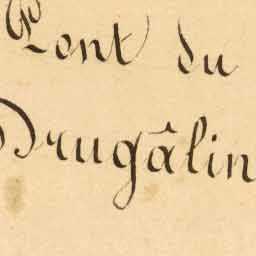 Pont du
Drugâlin